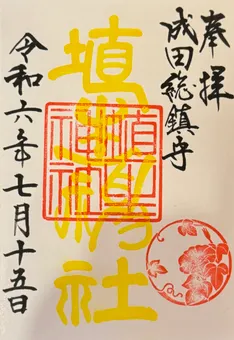 奉拝
成田総鎮守
埴生神社
令和六年七月十五日